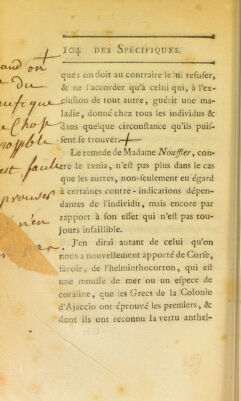 104 DES SPÉCIFIQUES.
que : on doit au contraire le lui refuser,
& ne l'accorder qu'à celui qui, à l'ex-
clusion de tout autre, guérit une ma-
ladie, donné chez tous les individus &
dans quelque circonstance qu'ils puis-
sent se trouver.
Le remede de Madame Nouffler, con-
tre le tænia, n'est pas plus dans le cas
que les autres, non-seulement eu égard
à certaines contre-indications dépen-
dantes de l'individu, mais encore par
rapport à son effet qui n'est pas tou-
jours infaillible.
J'en dirai autant de celui qu'on
nous a nouvellement apporté de Corse,
savoir, de l'helminthocorton, qui est
une mousse de mer ou un espece de
coraline, que les Grecs de la Colonie
d'Ajaccio ont éprouvé les premiers, &
dont ils ont reconnu la vertu anthel-
and on
du
Chose
possible
est facile
prouver
n'en